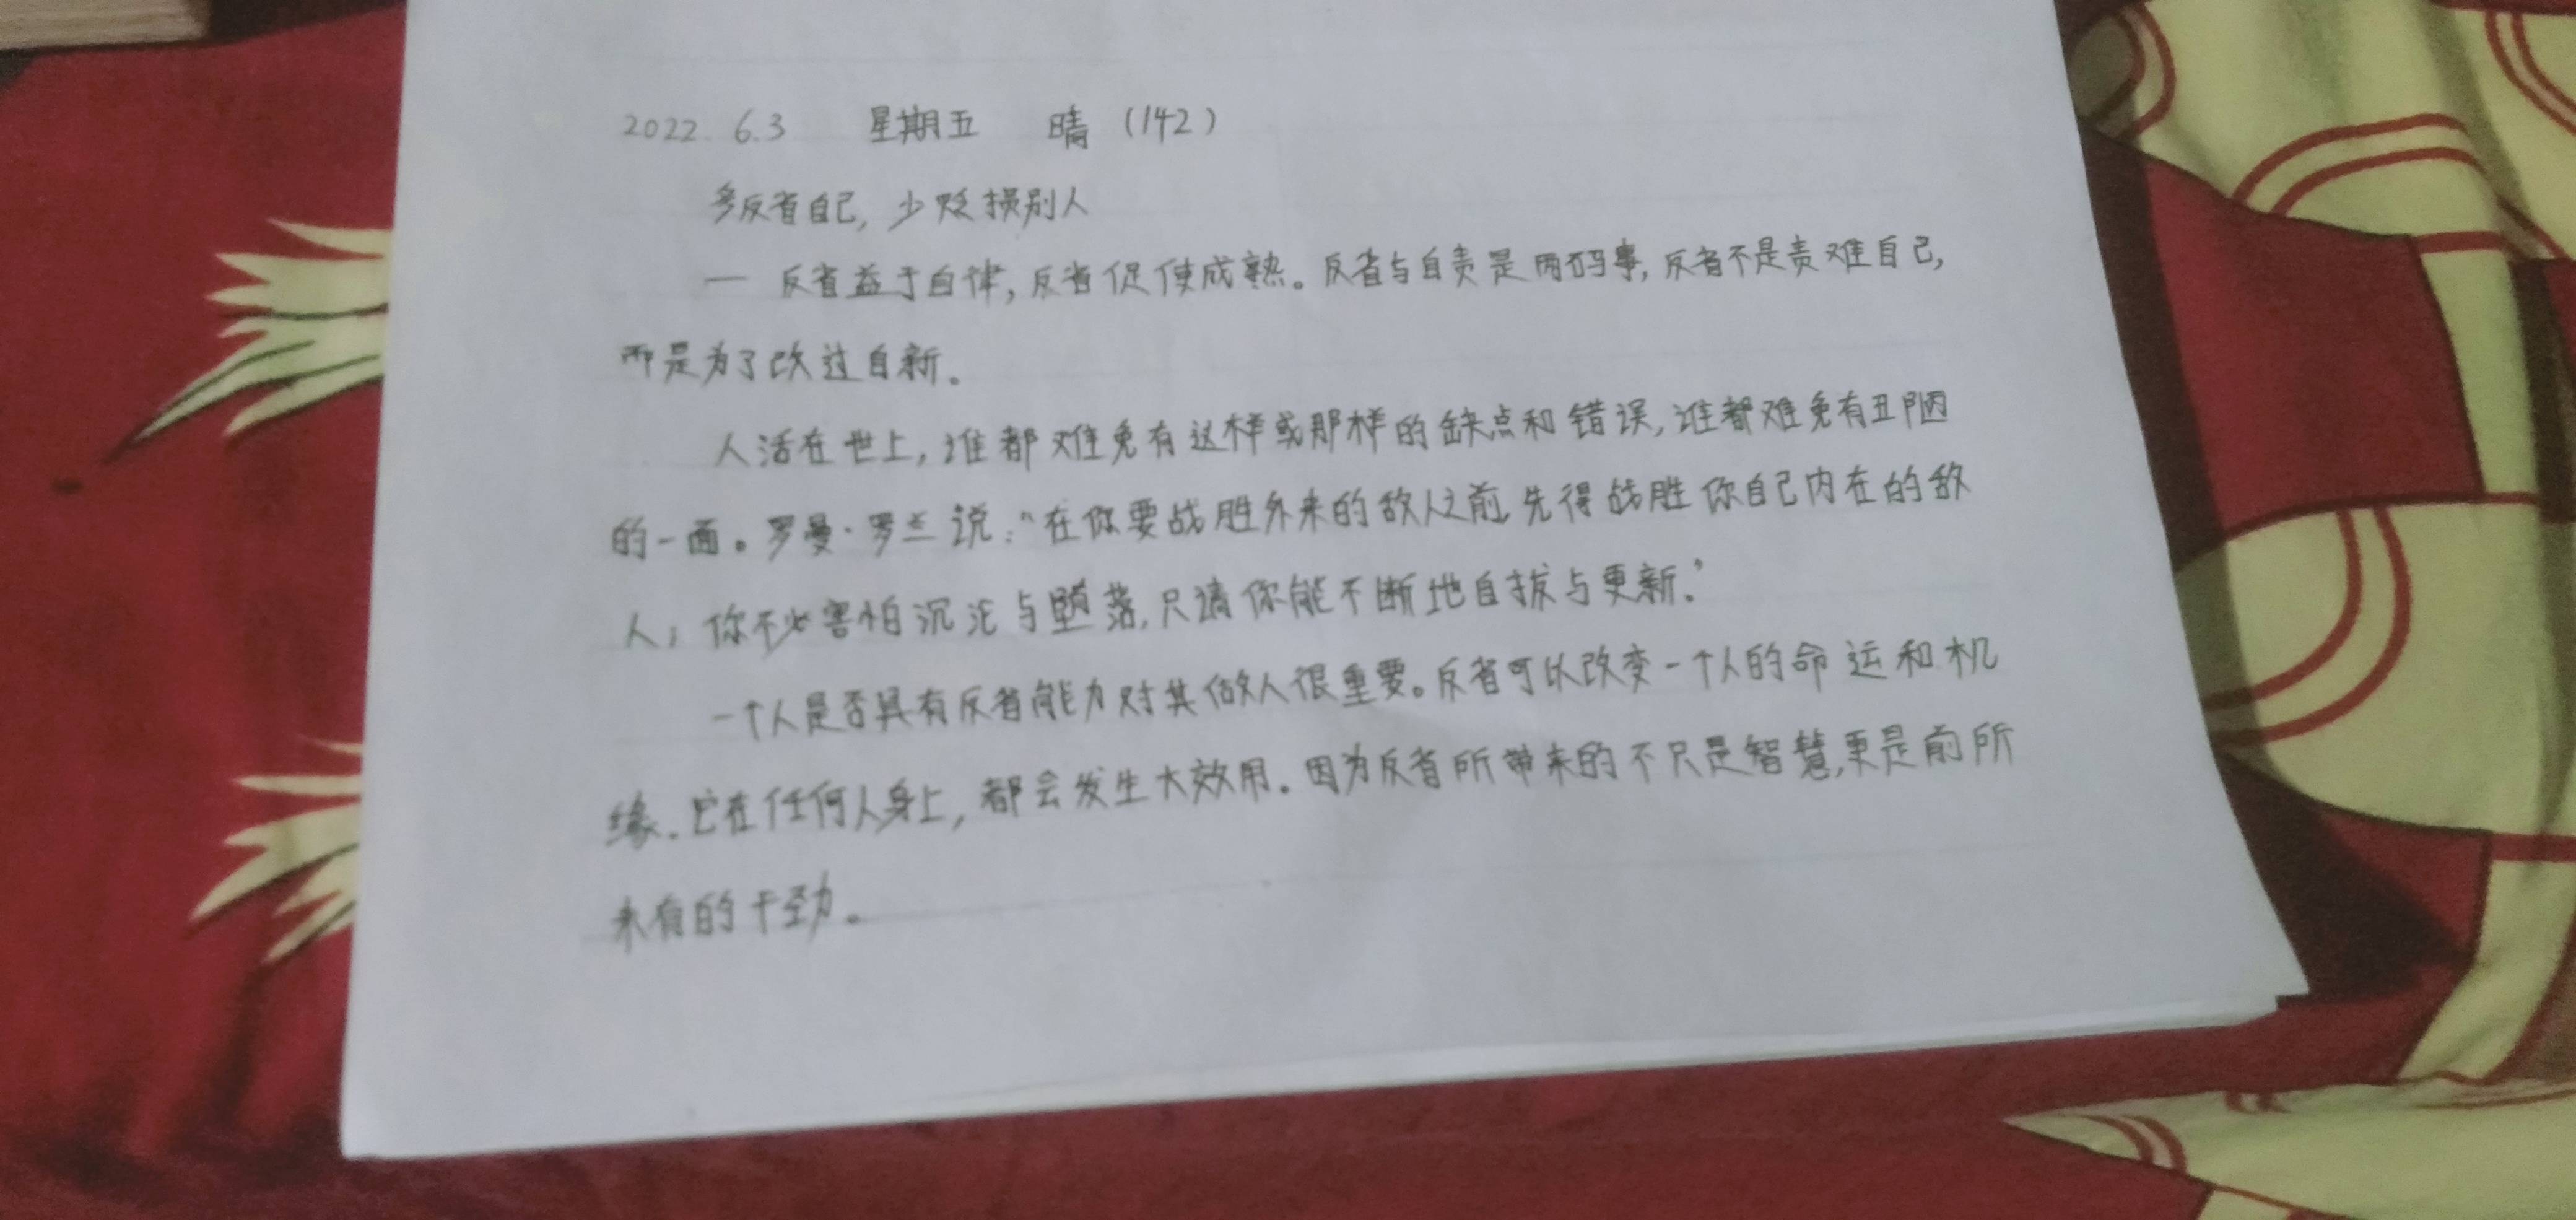 2022. 6.3 星期五 晴 (142)
多反省自己, 少贬损别人
— 反省益于自律, 反省促使成熟。反省与自责是两码事, 反省不是责难自己,
而是为了改过自新。
人活在世上, 谁都难免有这样或那样的缺点和错误, 谁都难免有丑陋
的一面。罗曼·罗兰说: “在你要战胜外来的敌人之前, 先得战胜你自己内在的敌
人; 你不必害怕沉沦与堕落, 只请你能不断地自拔与更新.”
一个人是否具有反省能力对其做人很重要。反省可以改变一个人的命运和机
缘. 它在任何人身上, 都会发生大效用. 因为反省所带来的不只是智慧, 更是前所
未有的干劲。